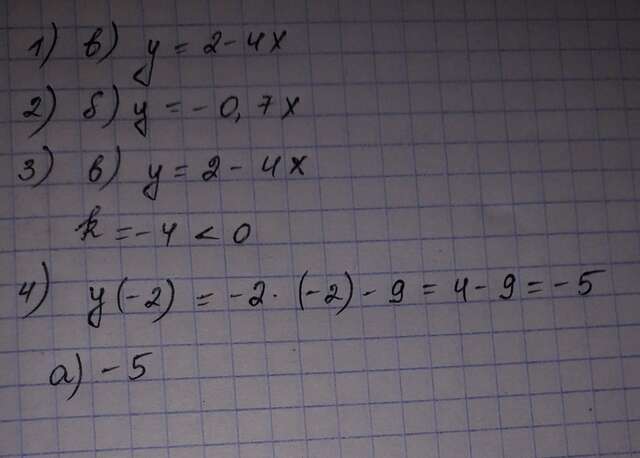 1) в) y = 2 - 4x
2) б) y = - 0,7x
3) в) y = 2 - 4x
k = -4 < 0
4) y(-2) = -2 · (-2) - 9 = 4 - 9 = -5
а) -5